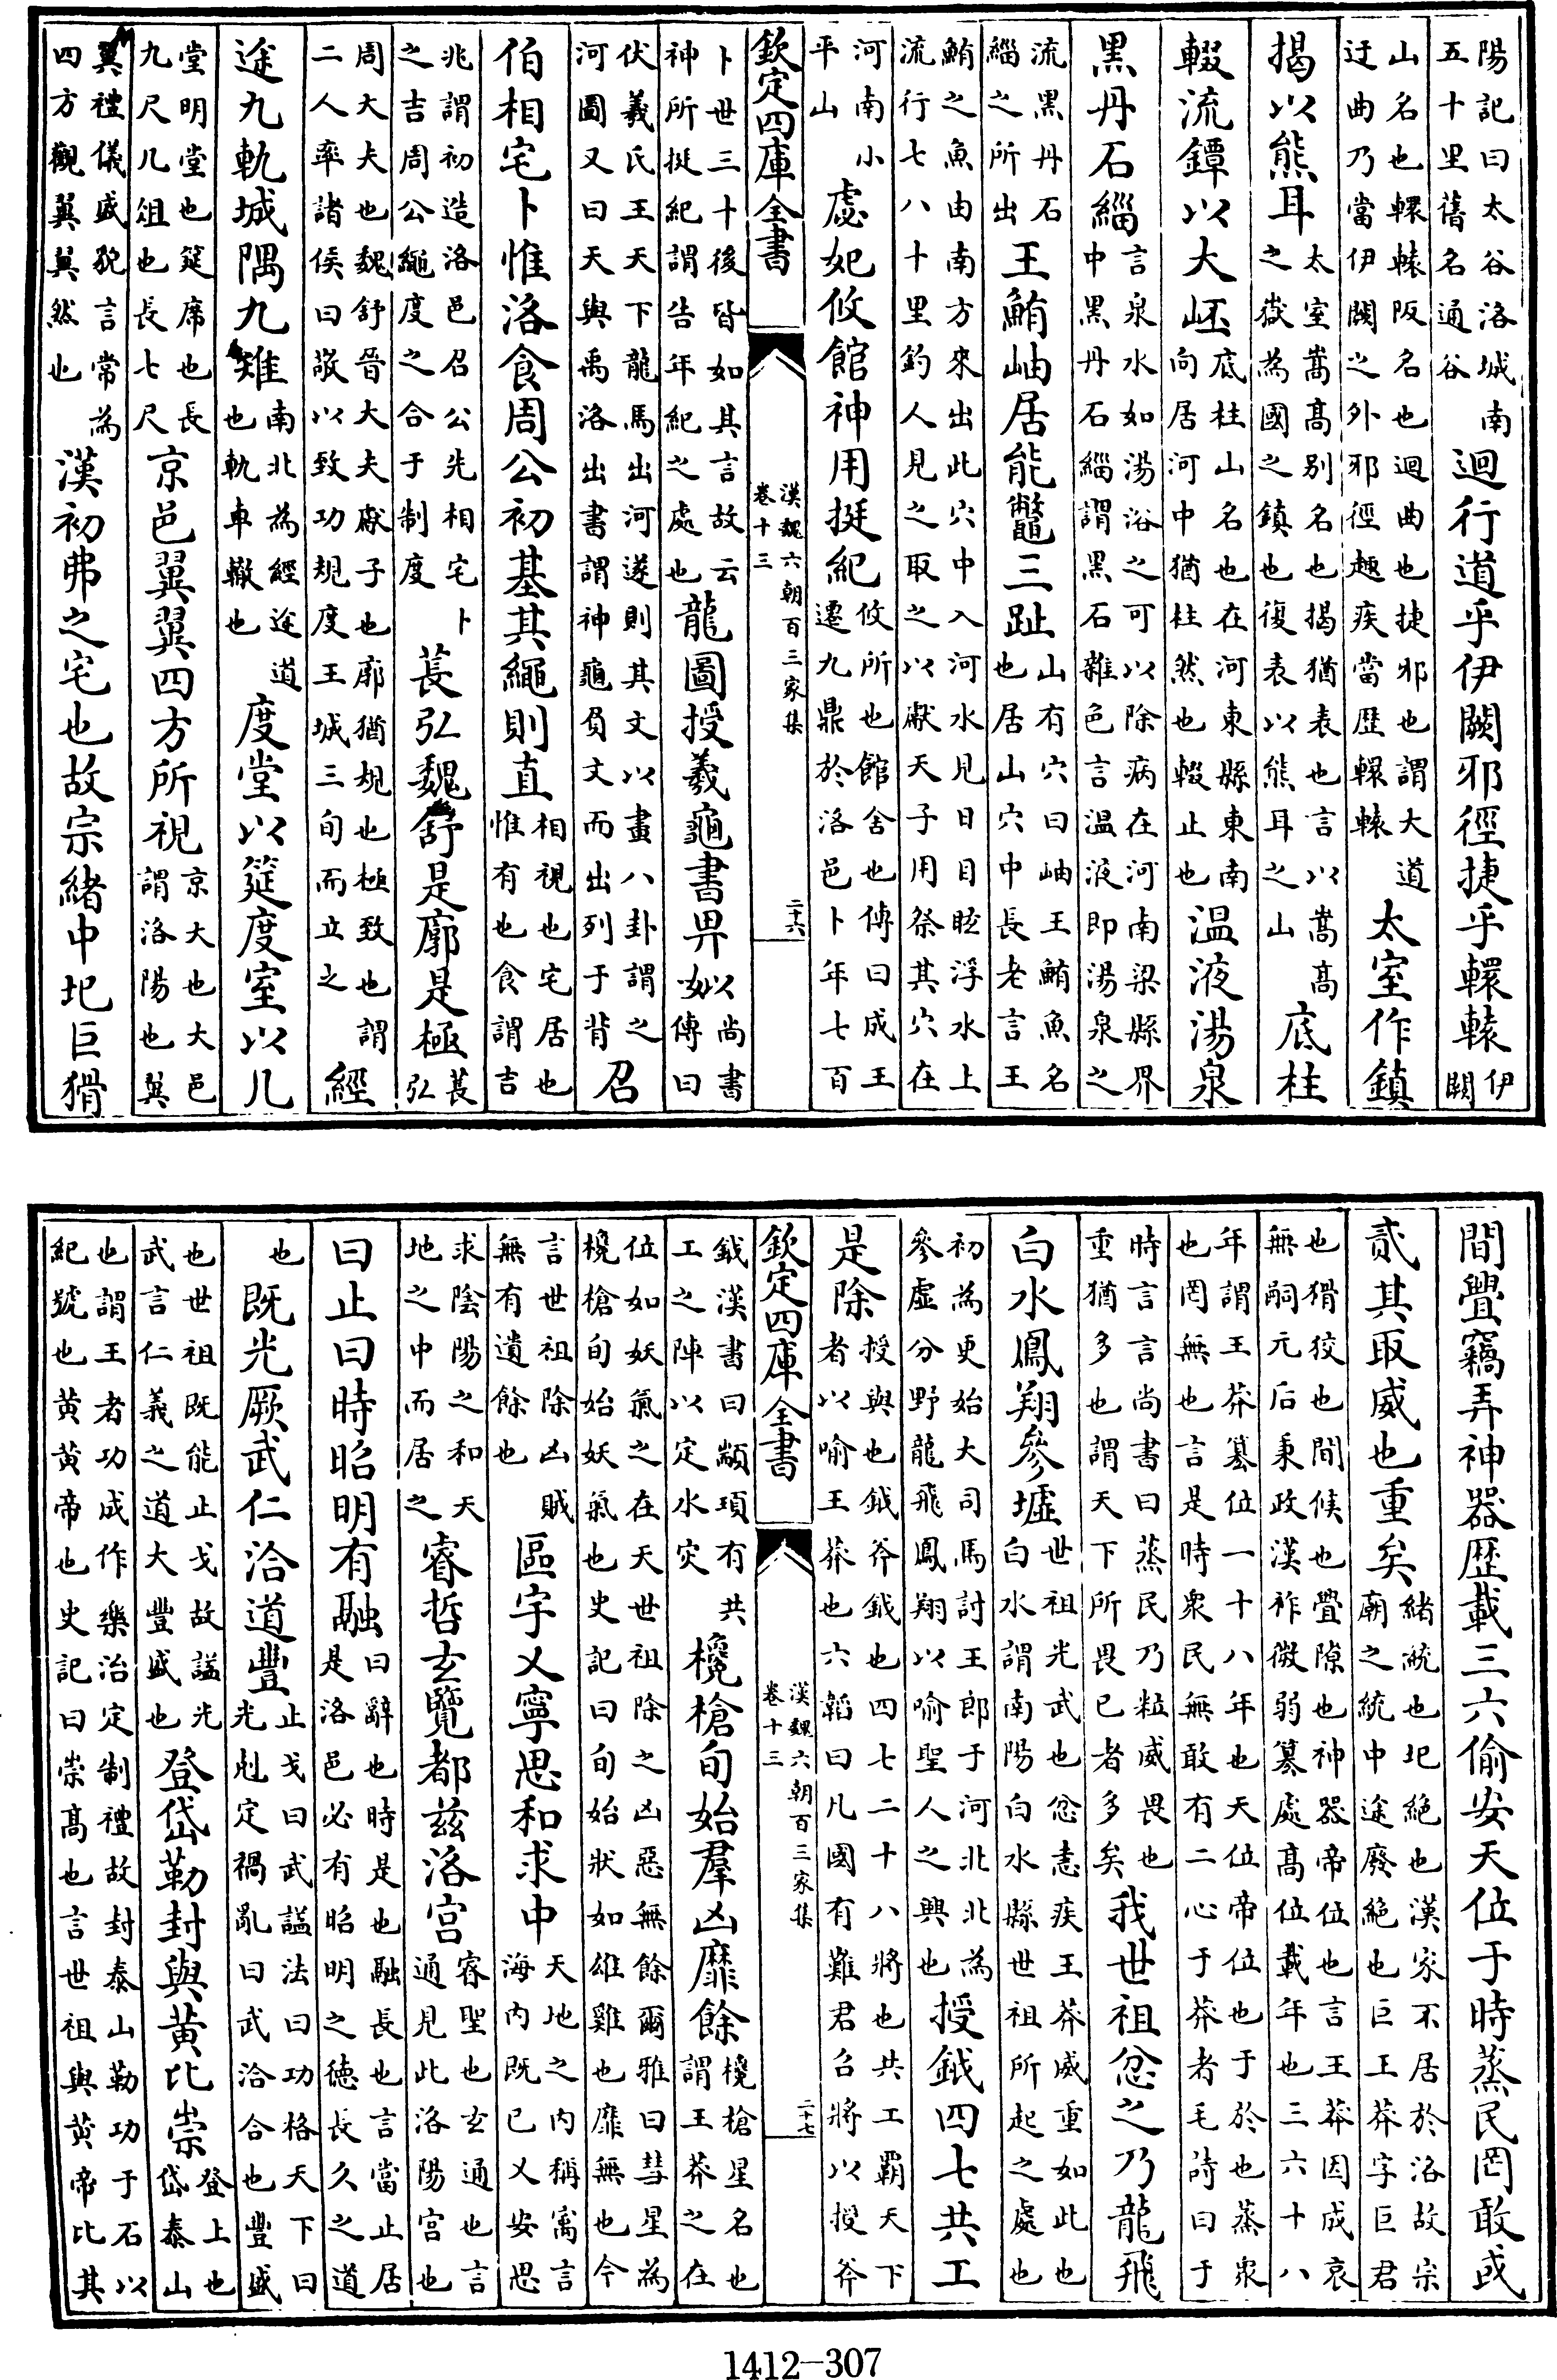 陽記曰太谷洛城南五十里舊名通谷迴行道乎伊闕邪徑捷乎轘轅伊闕
山名也轘轅阪名也迴曲也捷邪也謂大道迂曲乃當伊闕之外邪徑趣疾當歷轘轅太室作鎮
揭以熊耳太室嵩髙别名也揭猶表也言以嵩髙之嶽為國之鎮也復表以熊耳之山底柱
輟流鐔以大岯底柱山名也在河東縣東南向居河中猶柱然也輟止也温液湯泉
黑丹石緇言泉水如湯浴之可以除病在河南梁縣界中黑丹石緇謂黑石雜色言温液即湯泉之
流黑丹石緇之所出王鮪岫居能鼈三趾山有穴曰岫王鮪魚名也居山穴中長老言王
鮪之魚由南方來出此穴中入河水見日目眩浮水上流行七八十里釣人見之取之以獻天子用祭其穴在
河南小平山處妃攸館神用挺紀攸所也館舍也傳曰成王遷九鼎於洛邑卜年七百
欽定四庫全書 漢魏六朝百三家集 卷十三 二十六
卜世三十後皆如其言故云神所挺紀謂告年紀之處也龍圖授羲龜書畀姒尚書傳曰
伏羲氏王天下龍馬出河遂則其文以畫八卦謂之河圖又曰天與禹洛出書謂神龜負文而出列于背召
伯相宅卜惟洛食周公初基其繩則直相視也宅居也惟有也食謂吉
兆謂初造洛邑召公先相宅卜之吉周公繩度之合于制度萇弘魏舒是廓是極萇弘
周大夫也魏舒晉大夫獻子也廓猶規也極致也謂二人率諸侯曰敬以致功規度王城三旬而立之經
途九軌城隅九雉南北為經途道也軌車轍也度堂以筵度室以几
堂明堂也筵席也長九尺几俎也長七尺京邑翼翼四方所視京大也大邑謂洛陽也翼
翼禮儀盛貌言常為四方觀翼翼然也漢初弗之宅也故宗緒中圮巨猾
間舋竊弄神器歴載三六偷安天位于時蒸民罔敢或
貳其取威也重矣緒統也圮絶也漢家不居於洛故宗廟之統中途廢絶也巨王莽字巨君
也猾狡也間候也舋隙也神器帝位也言王莽因成哀無嗣元后秉政漢祚微弱簒處髙位載年也三六十八
年謂王莽簒位一十八年也天位帝位也于於也蒸衆也罔無也言是時衆民無敢有二心于莽者毛詩曰于
時言言尚書曰蒸民乃粒威畏也重猶多也謂天下所畏已者多矣我世祖忿之乃龍飛
白水鳳翔參墟世祖光武也忿恚疾王莽威重如此也白水謂南陽白水縣世祖所起之處也
初為更始大司馬討王郎于河北北為參虛分野龍飛鳳翔以喻聖人之興也授鉞四七共工
是除授與也鉞斧鉞也四七二十八將也共工覇天下者以喻王莽也六韜曰凡國有難君召將以授斧
欽定四庫全書 漢魏六朝百三家集 卷十三 二十七
鉞漢書曰顓頊有共工之陣以定水灾欃槍旬始羣凶靡餘欃槍星名也謂王莽之在
位如妖氣之在天世祖除之凶惡無餘爾雅曰彗星為欃槍旬始妖氣也史記曰旬始狀如雄雞也靡無也今
言世祖除凶賊無有遺餘也區宇乂寧思和求中天地之内稱㝢言海内既已乂安思
求陰陽之和天地之中而居之睿哲玄覽都兹洛宫睿聖也玄通也言通見此洛陽宫也
曰止曰時昭明有融曰辭也時是也融長也言當止居是洛邑必有昭明之德長久之道
也既光厥武仁洽道豐止戈曰武謚法曰功格天下曰光尅定禍亂曰武洽合也豐盛
也世祖既能止戈故謚光武言仁義之道大豐盛也登岱勒封與黄比崇登上也岱泰山
也謂王者功成作樂治定制禮故封泰山勒功于石以紀號也黄黄帝也史記曰崇髙也言世祖與黄帝比其
1412—307